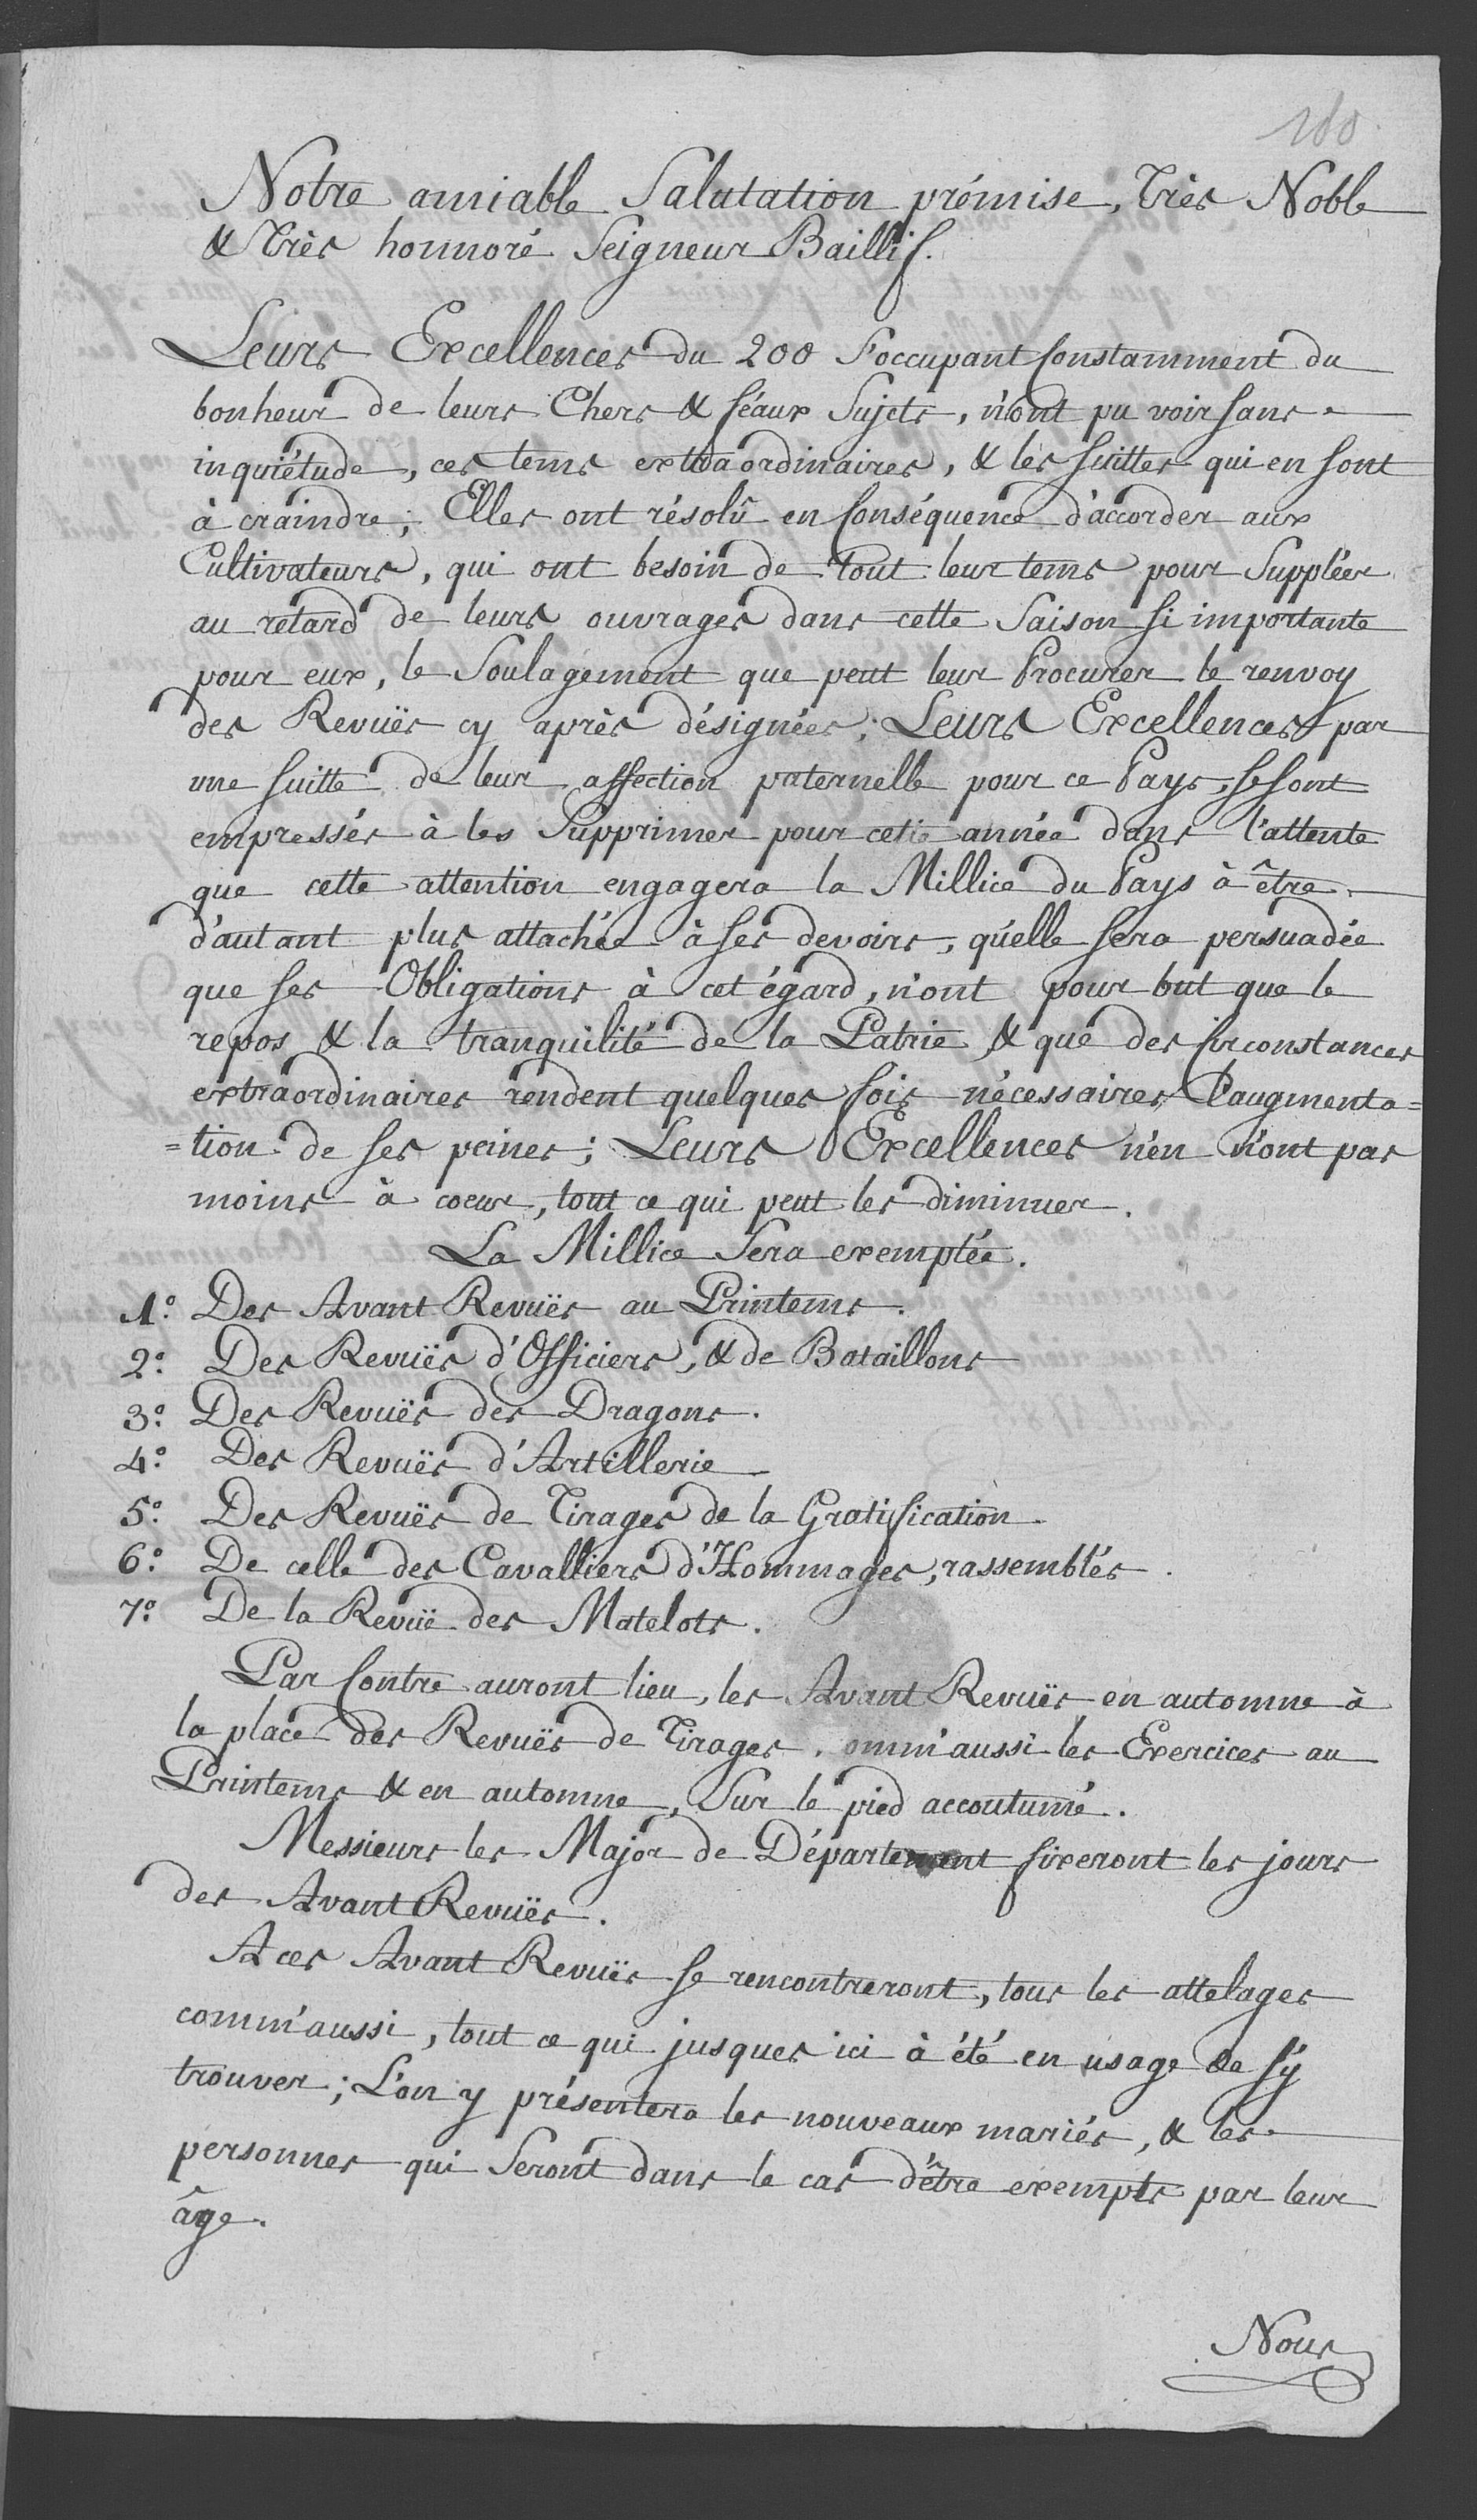 160.
Notre amiable Salutation prémise, Très Noble
& Très honnoré Seigneur Baillif.
Leurs Excellences du 200 s'occupant constamment du
bonheur de leurs Chers & féaux Sujets, n'ont pu voir sans
inquiétude, ces tems extraordinaires, & les suittes qui en sont
à craindre; Elles ont résolû en Conséquence d'accorder aux
Cultivateurs, qui ont besoin de tout leur tems pour Suppléer
au retard de leurs ouvrages dans cette Saison si importante
pour eux, le Soulagement que peut leur Procurer le renvoy
des Revuës cy après désignées; Leurs Excellences par
une suitte de leur affection paternelle pour ce Pays, se sont
empressés à les Supprimer pour cette année dans l'attente
que cette attention engagera la Millice du Pays à être
d'autant plus attachée à ses devoirs, qu'elle sera persuadée
que ses Obligations à cet égard, n'ont pour but que le
repos & la tranquilité de la Patrie, & que des circonstances
extraordinaires rendent quelques fois nécessaires l'augmenta=
=tion de ses peines; Leurs Excellences n'en n'ont pas
moins à coeur, tout ce qui peut les diminuer.
La Millice Sera exemptée.
1.° Des Avant Revuës au Printems.
2.° Des Revuës d'Officiers, & de Bataillons
3.° Des Revuës des Dragons.
4.° Des Revuës d'Artillerie
5.° Des Revuës de Tirages de la Gratification.
6.° De celle des Cavalliers d'Hommages, rassemblés.
7.° De la Revuë des Matelots.
Par Contre auront lieu, les Avant Revuës en automne à
la place des Revuës de Tirages, omm'aussi les Exercices au
Printems & en automne, Sur le pied accoutumé.
Messieurs les Major de Département fixeront les jours
des Avant Revuës.
A ces Avant Revuës se rencontreront, tous les attelages
comm'aussi, tout ce qui jusques ici à été en usage de s'y
trouver; L'on y présentera les nouveaux mariés, & les
personnes qui Seront dans le cas d'être exempts par leur
âge.
Nous